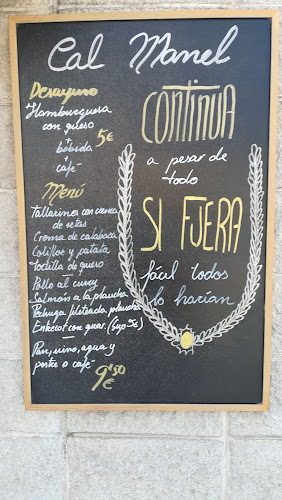 Cal Manel
Desayuno
Hamburguesa
con queso
+
bebida
+
café
5€
Menú
Tallarines con crema
de setas
Crema de calabaza
Colillor y patata
Tortilla de queso
Pollo al curry
Salmón a la plancha
Pechuga fileteada plancha
Entrecot con guar. (sup 5€)
Pan, vino, agua y
postre o café
9'50
€
CONTINUA
a pesar de
todo
SI FUERA
fácil todos
lo harían